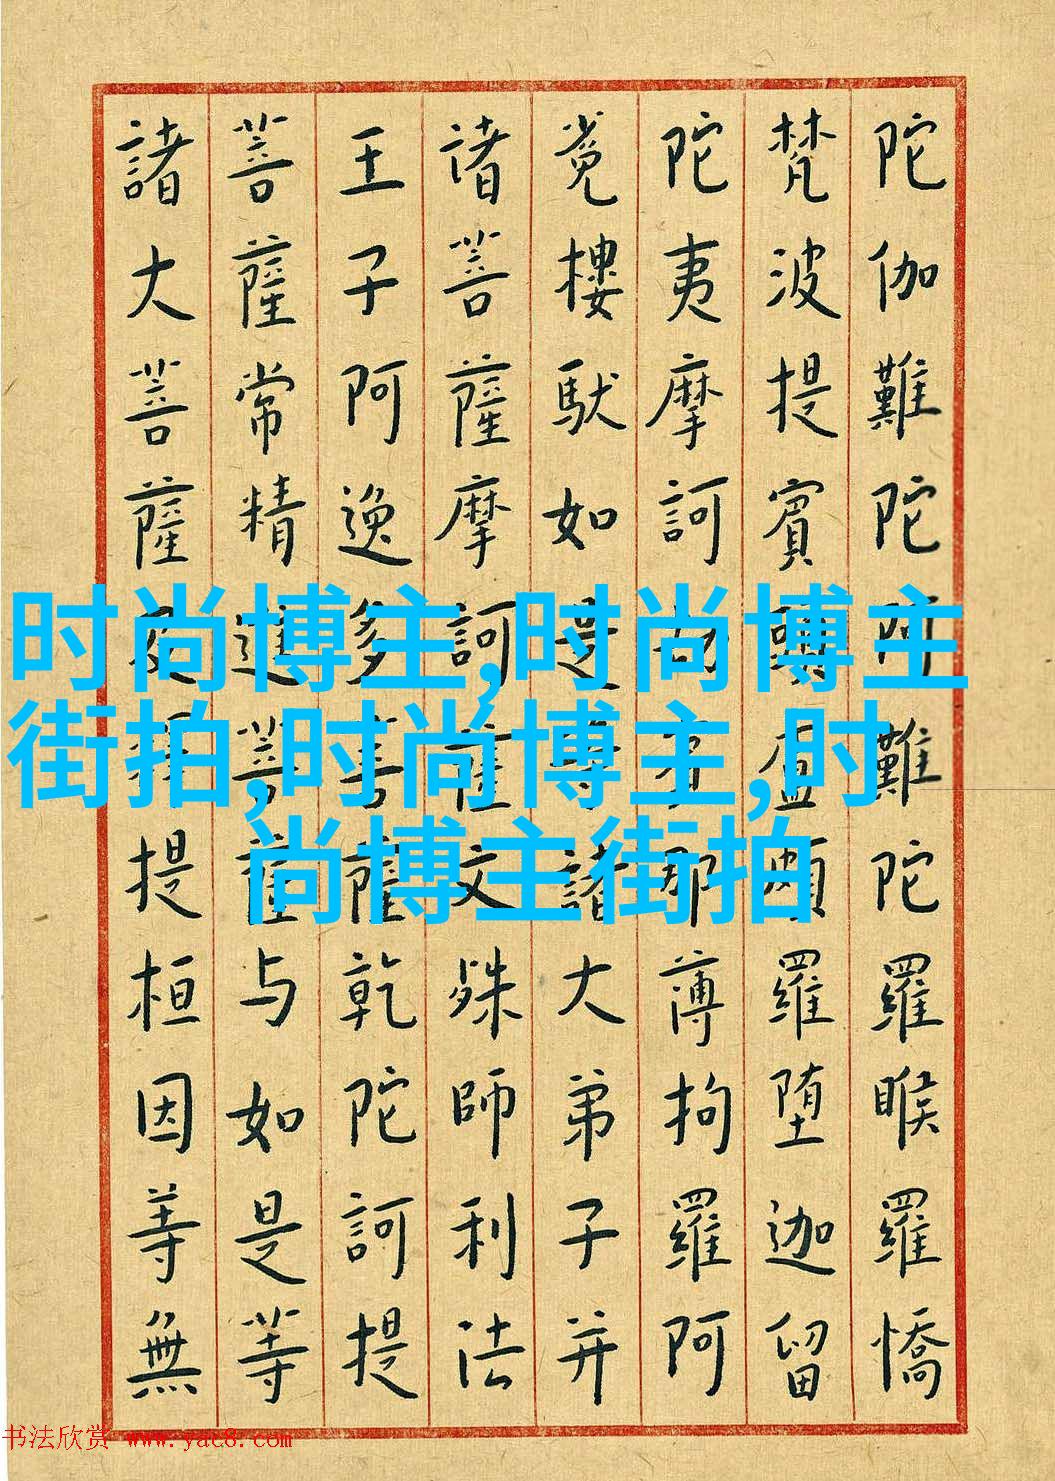 陀伽難陀阿難陀羅睺羅憍
梵波提賓頭盧頗羅堕迦留
陀夷摩訶劫賓那薄拘羅阿
㝹樓馱如是等諸大弟子并
诸菩薩摩訶薩文殊師利法
王子阿逸多菩薩乾陀訶提
菩薩常精進菩薩与如是等
諸大菩薩及釋提桓因等無
时尚博主,时尚博主
街拍,时尚博主,时
尚博主街拍
书法欣赏 www.yac8.com